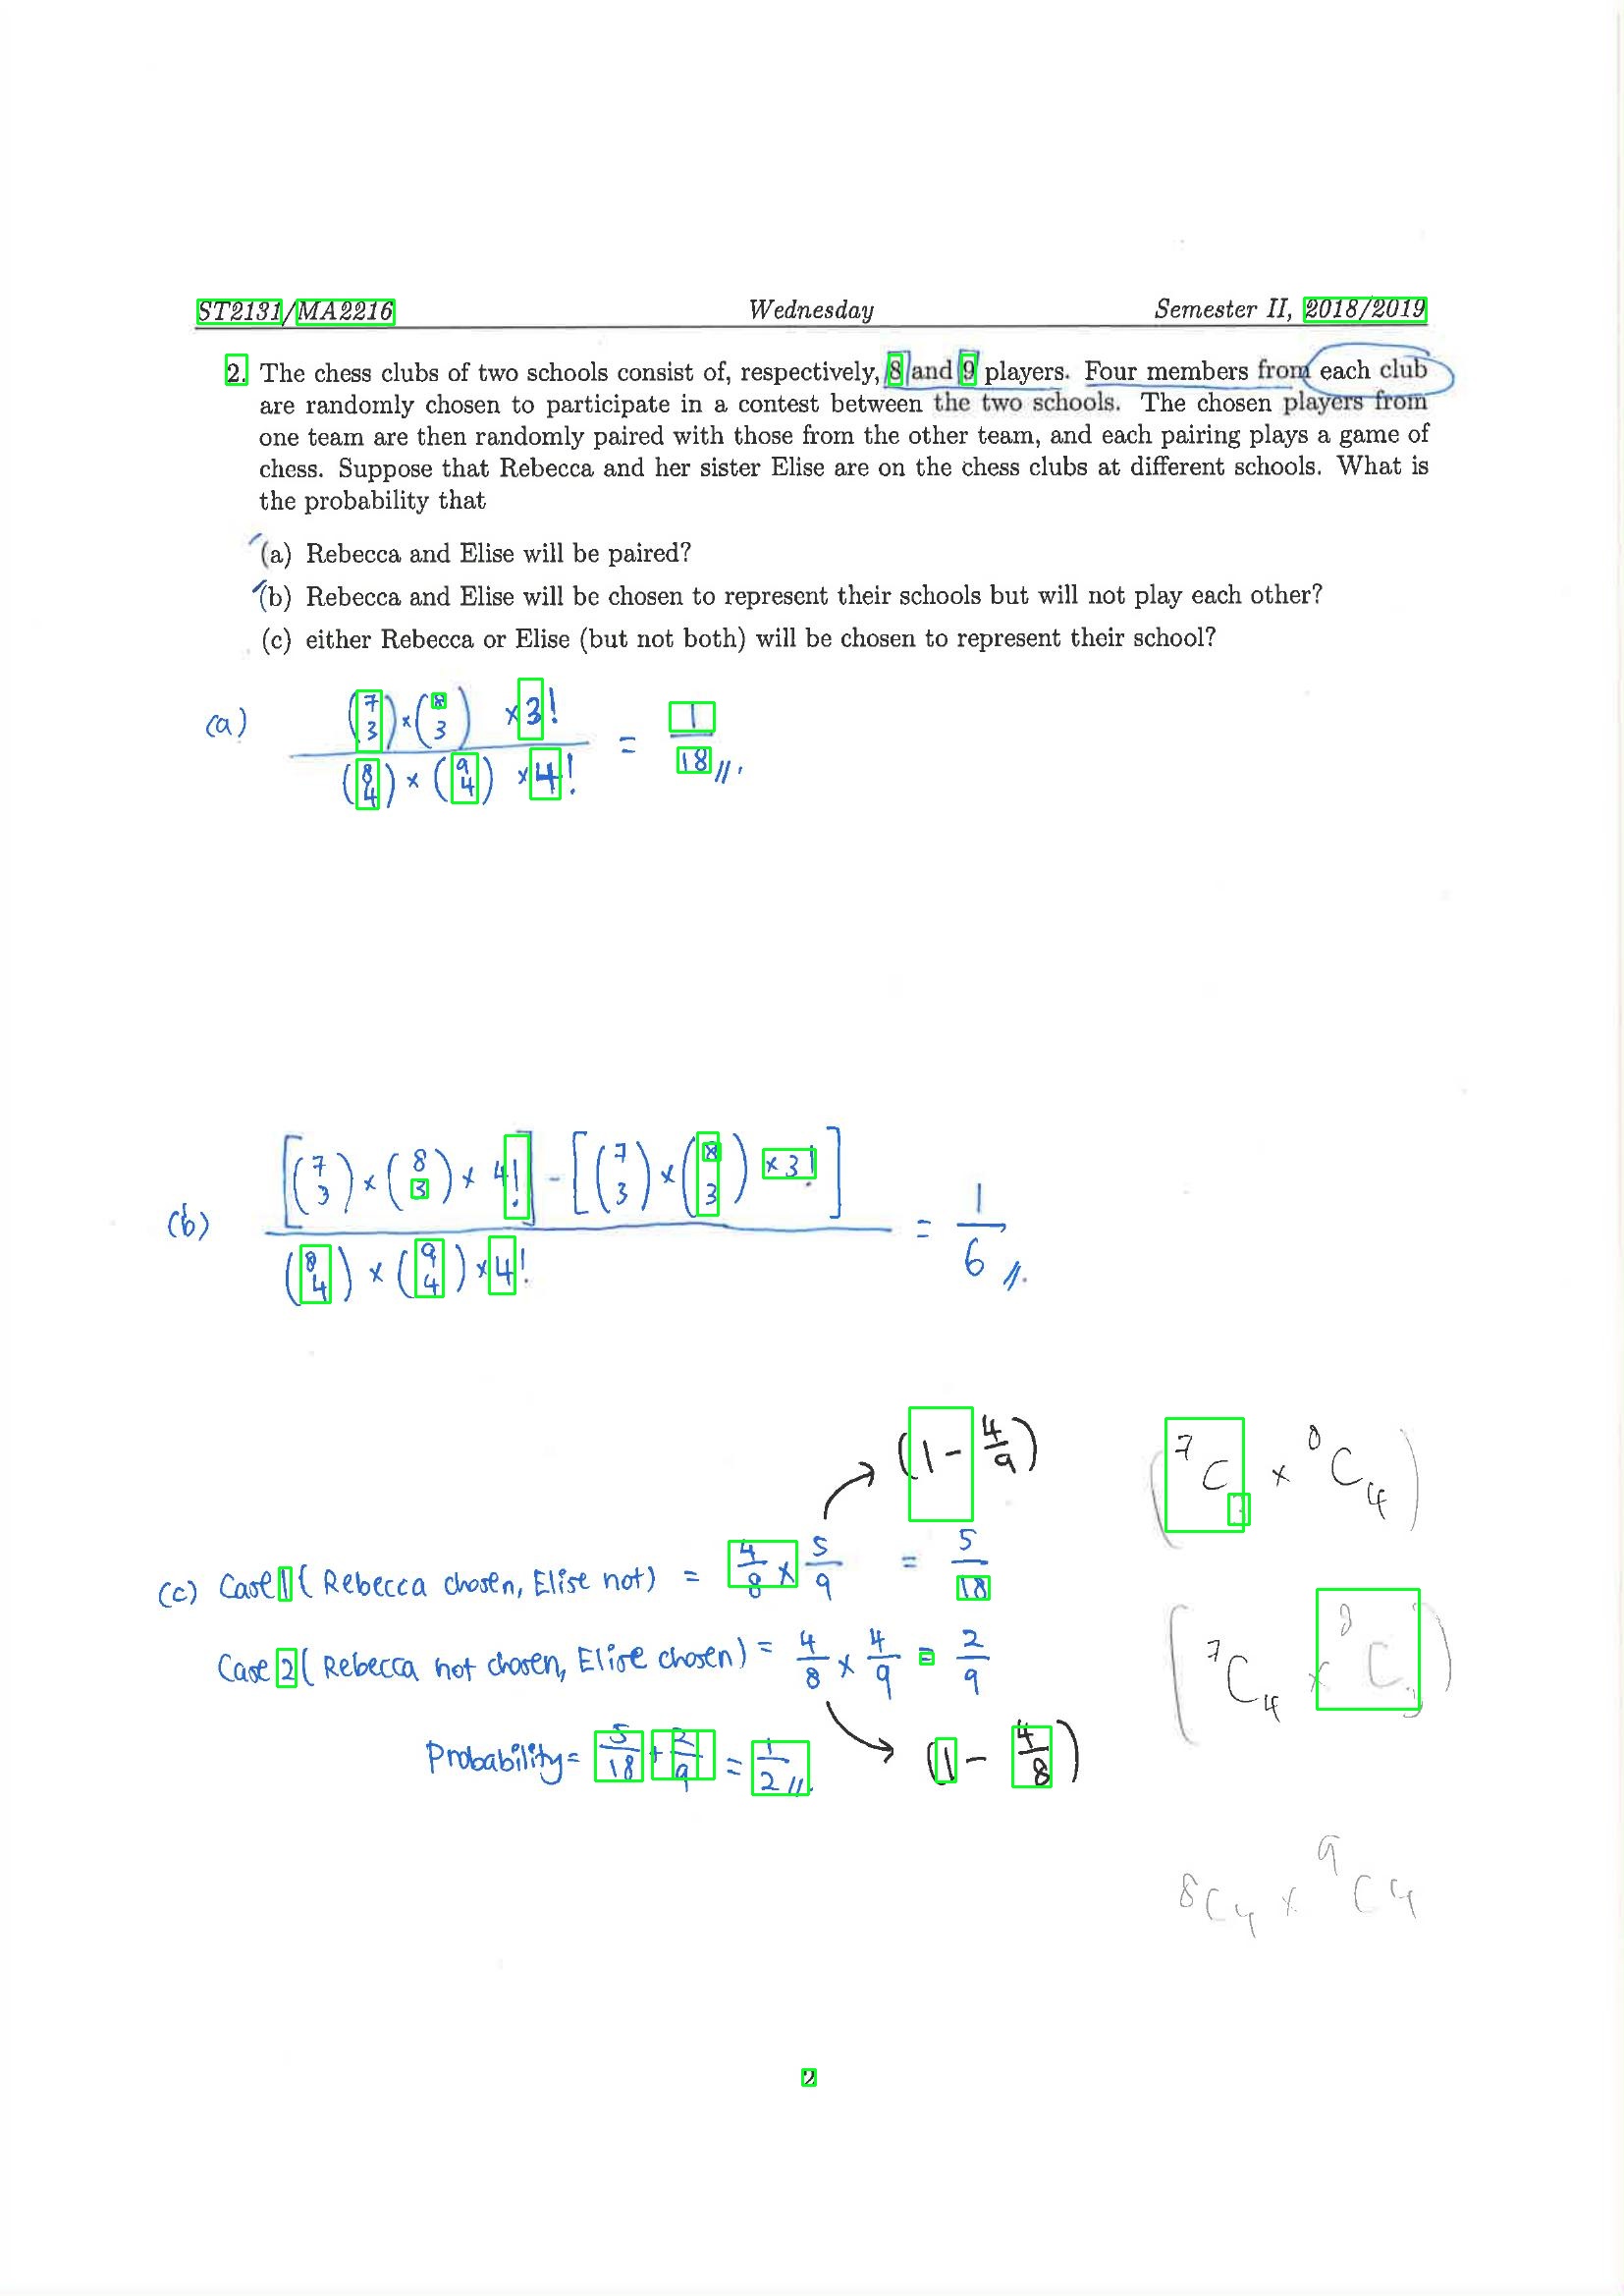 ST2131/MA2216 Wednesday Semester II, 2018/2019
2. The chess clubs of two schools consist of, respectively, 8 and 9 players. Four members from each club
are randomly chosen to participate in a contest between the two schools. The chosen players from
one team are then randomly paired with those from the other team, and each pairing plays a game of
chess. Suppose that Rebecca and her sister Elise are on the chess clubs at different schools. What is
the probability that
(a) Rebecca and Elise will be paired?
(b) Rebecca and Elise will be chosen to represent their schools but will not play each other?
(c) either Rebecca or Elise (but not both) will be chosen to represent their school?
(a) (7 3) × (8 3) × 3! / (8 4) × (9 4) × 4! = 1/18 //.
(b) [(7 3) × (8 3) × 4!] - [(7 3) × (8 3) × 3!] / (8 4) × (9 4) × 4! = 1/6 //.
(1 - 4/9) (7C × 8C4)
(c) Case 1 (Rebecca chosen, Elise not) = 4/8 × 5/9 = 5/18
Case 2 (Rebecca not chosen, Elise chosen) = 4/8 × 4/9 = 2/9 (7C4 × 8C3)
Probability = 5/18 + 2/9 = 1/2 //. (1 - 4/8)
8C4 × 9C4
2